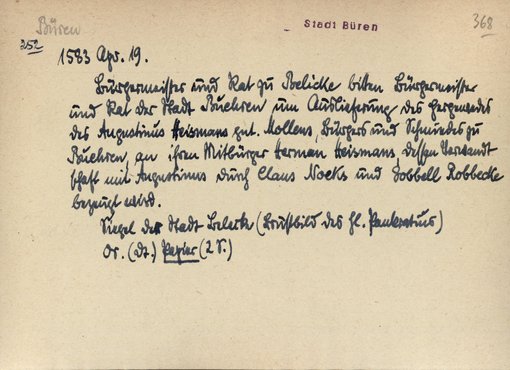 Büren
Stadt Büren
368
252
1583 Apr. 19.
Bürgermeister und Rat zu Belicke bitten Bürgermeister
und Rat der Stadt Buehren um Auslieferung des Hergewedes
des Augustinus Heismans gnt. Mollens, Bürgers und Schmiedes zu
Buehren, an ihren Mitbürger Herman Heismans, dessen Verwandt
schaft mit Augustinus durch Claus Nocks und Gobbell Robbecke
bezeugt wird.
Siegel der Stadt Belecke (Brustbild des hl. Pankratius)
Or. (dt.) Papier (2 S.)